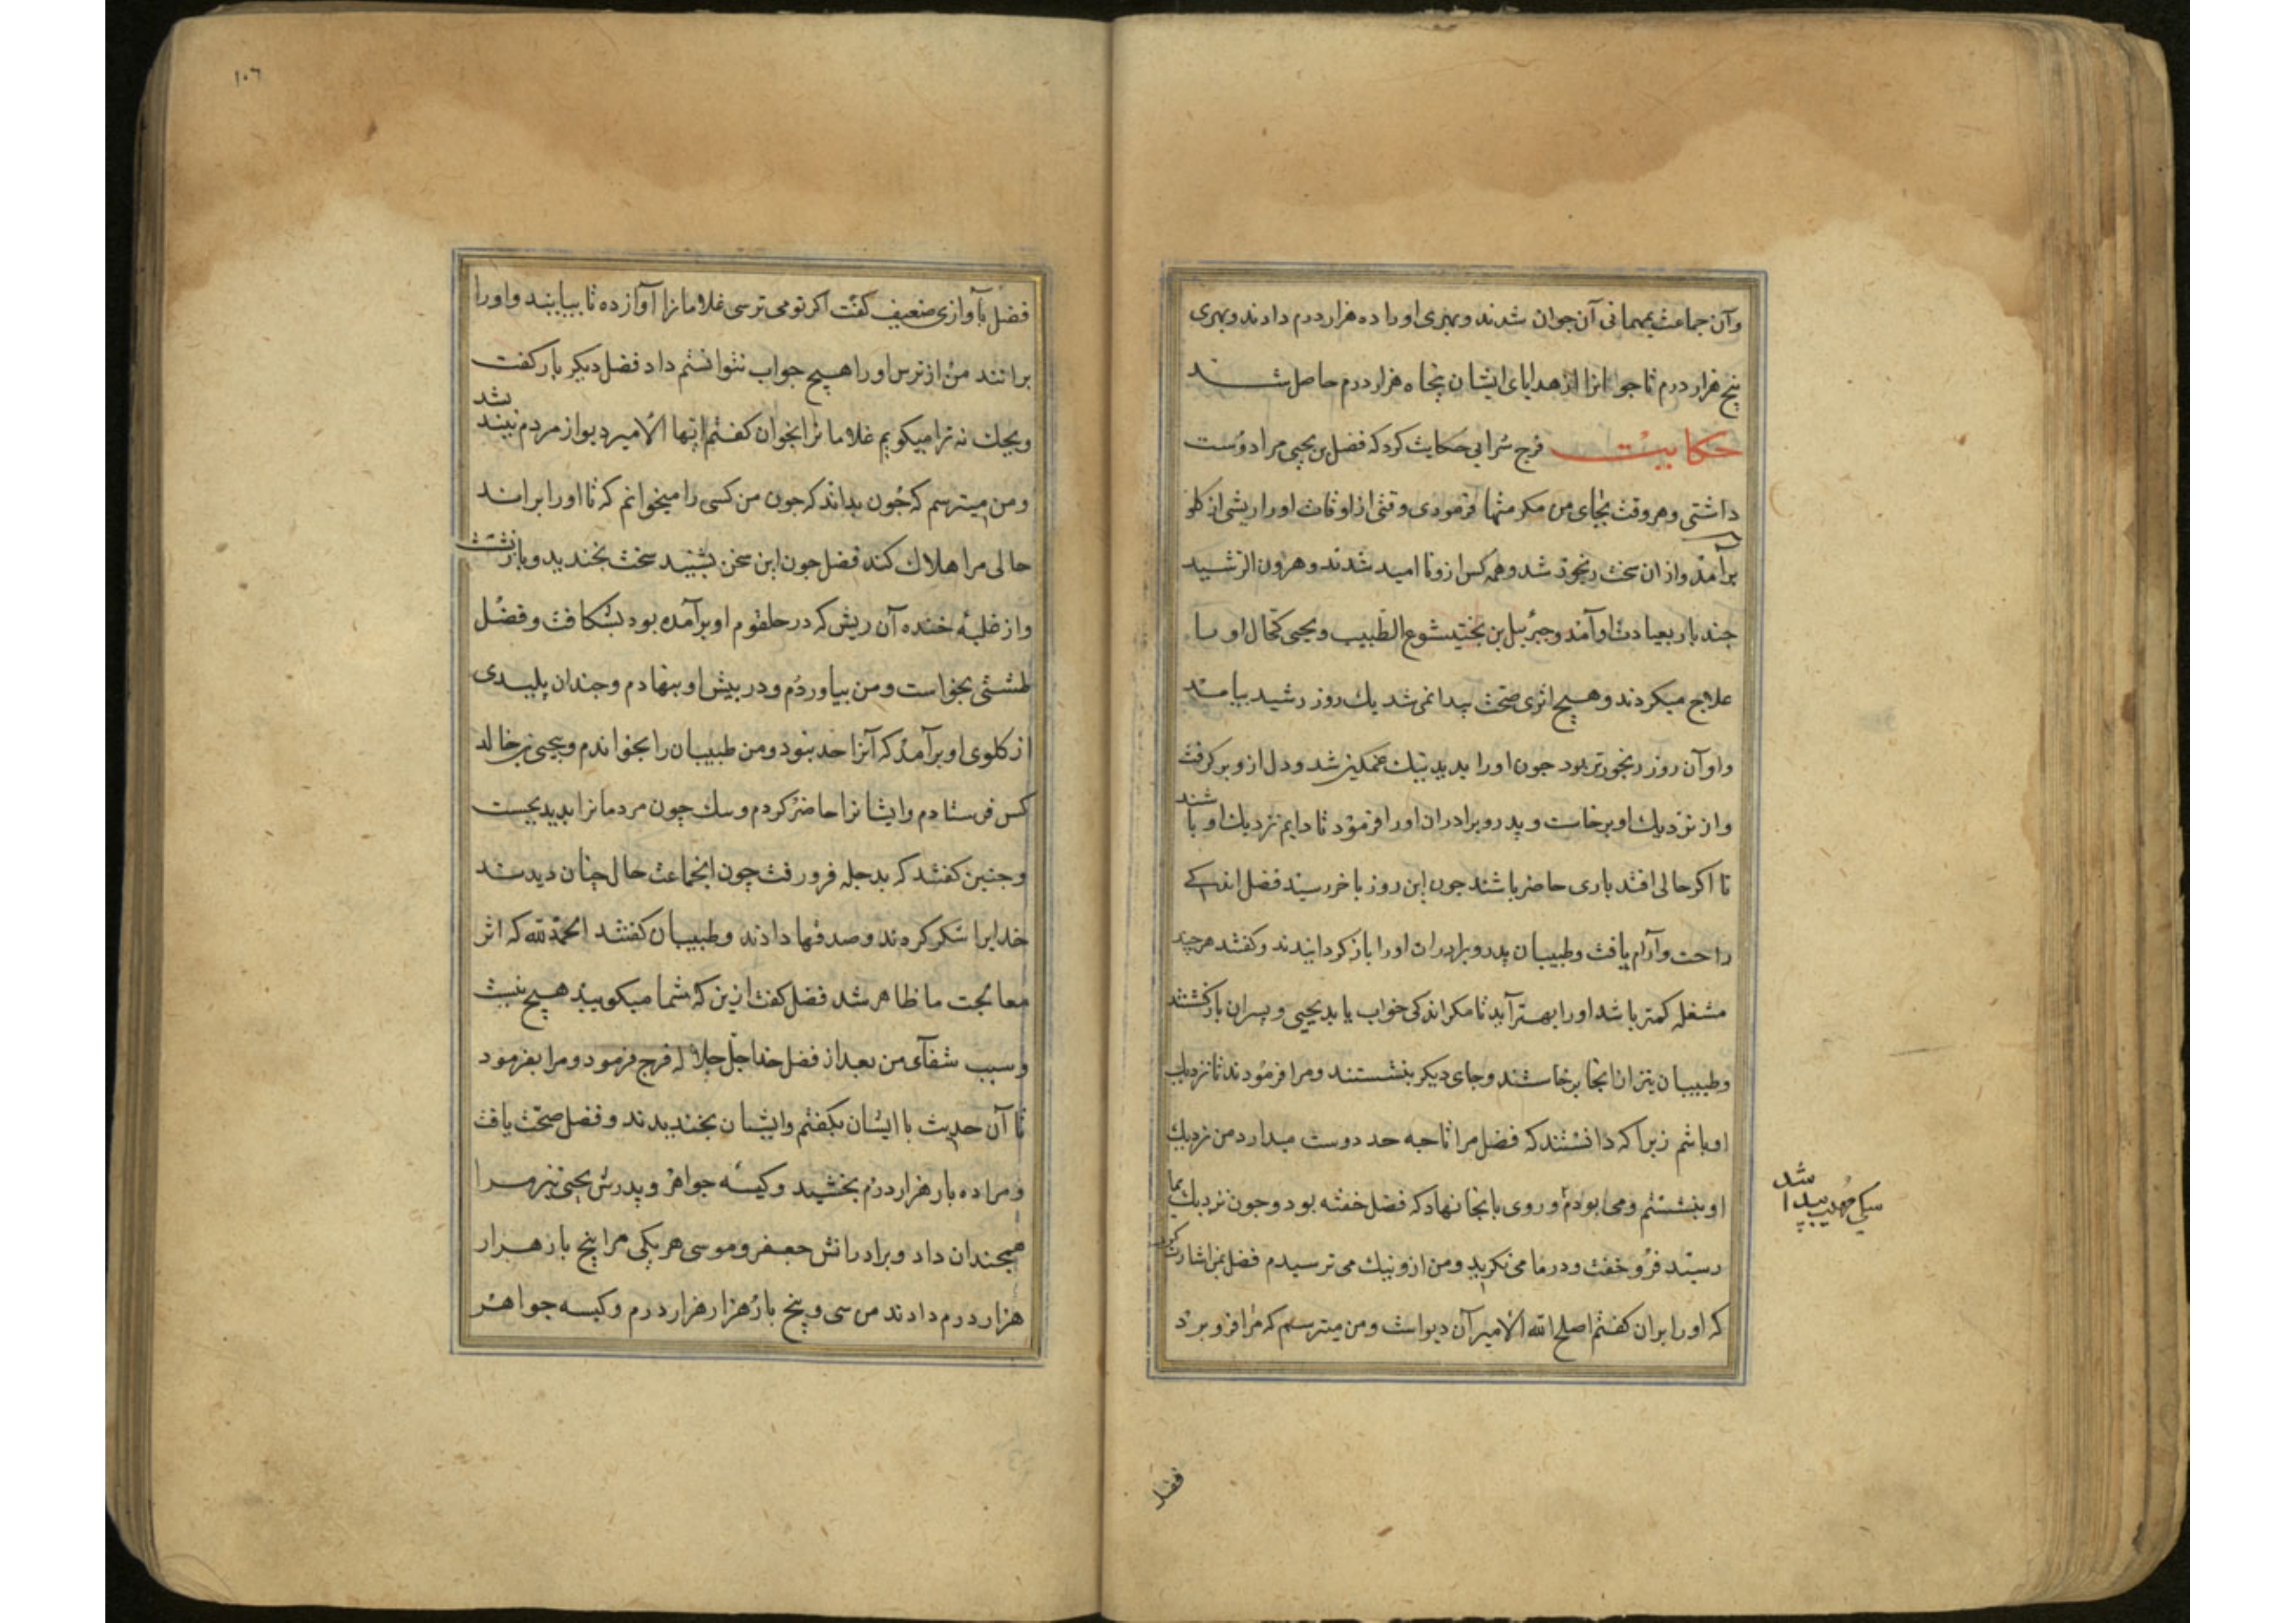 وآن جماعت بمهمانی آن جوان شدند و بهری اورا ده هزار درم دادند و بهری
پنج هزار درم تا جوانرا از هدایای ایشان پنجاه هزار درم حاصل شد
حکایت فرج شرابی حکایت کرد که فضل بن یحیی مرا دوست
داشتی و هر وقت بجای من مکرمتها فرمودی وقتی از اوقات اورا ریشی از کلو
برآمد و از ان سخت رنجور شد و همه کس ازو نا امید شدند و هرون الرشید
چند بار بعیادت او آمد و جبرئیل بن بختیشوع الطبیب و یحیی کحال اورا
علاج میکردند و هیچ اثری صحت پیدا نمی شد یك روز رشید بیامد
واو آن روز رنجورتر بود جون اورا بدید نیك غمکین شد و دل ازو برکرفت
واز نزدیك او برخاست و پدر و برادران اورا فرمود تا دایم نزدیك او باشند
تا اکر حالی افتد باری حاضر باشند جون این روز باخر رسید فضل اندکی
راحت و آرام یافت و طبیبان پدر و برادران اورا باز کردانیدند و کفتند هرچند
مشغله کمتر باشد اورا بهتر آید تا مکر اندکی خواب یابد یحیی و پسران بازکشتند
و طبیبان نیز از انجا برخاستند و جای دیکر بنشستند و مرا فرمودند تا نزدیك
او باشم زیرا که دانستند که فضل مرا تا جه حد دوست میدارد من نزدیك
او بنشستم و می بودم و روی بانجا نهاد که فضل خفته بود و جون نزدیك بما
رسید فرو خفت و در ما می نکرید و من ازو نیك می ترسیدم فضل بمن اشارت کرد
که اورا بران کفتم اصلح الله الامیر آن دیو است و من میترسم که مرا فرو برد
سکی مهیب پیدا شد
فضل
١٠٦
فضل بآوازی ضعیف کفت اکر تو می ترسی غلامانرا آواز ده تا بیایند و اورا
برانند من از ترس اورا هیچ جواب نتوانستم داد فضل دیکر بار کفت
ویحك نه ترا میکویم غلامانرا بخوان کفتم ایها الامیر دیو از مردم نیند شد
و من میترسم که جون بداند که جون من کسی را میخوانم که تا اورا براند
حالی مرا هلاك کند فضل جون این سخن بشنید سخت بخندید و باز نشست
و از غلبه خنده آن ریش که در حلقوم او برآمده بود بشکافت و فضل
طشتی بخواست و من بیاوردم و در بیش او بنهادم و جندان پلیدی
از کلوی او برآمد که آنرا حد نبود و من طبیبان را بخواندم و بیحیی بن خالد
کس فرستادم و ایشانرا حاضر کردم و سك چون مردمانرا بدید بجست
و جنین کفتند که بدجله فرو رفت چون انجماعت حال چنان دیدند
خدایرا شکر کردند و صدقها دادند و طبیبان کفتند الحمد لله که اثر
معالجت ما ظاهر شد فضل کفت ازین که شما میکویید هیچ نیست
و سبب شفآی من بعد از فضل خدا جل جلاله فرج فرمود و مرا بفرمود
تا آن حدیث با ایشان بکفتم و ایشان بخندیدند و فضل صحت یافت
و مرا ده بار هزار درم بخشید و کیسه جواهر و پدرش یحیی نیز مرا
همجندان داد و برادرانش جعفر و موسی هر یکی مرا پنج بار هزار
هزار درم دادند من سی و پنج بار هزار هزار درم و کیسه جواهر